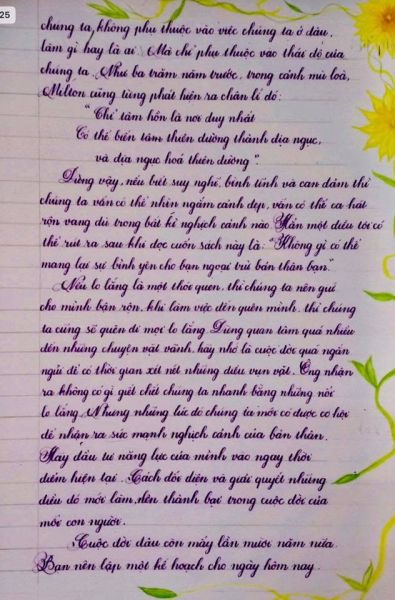 25
chúng ta, không phụ thuộc vào việc chúng ta ở đâu,
làm gì hay là ai. Mà chỉ phụ thuộc vào thái độ của
chúng ta. Như ba trăm năm trước, trong cảnh mù loà,
Milton cũng từng phát hiện ra chân lí đó:
"Chỉ tâm hồn là nơi duy nhất
Có thể biến tâm thiên đường thành địa ngục,
và địa ngục hoá thiên đường".
Đúng vậy, nếu biết suy nghĩ, bình tĩnh và can đảm thì
chúng ta vẫn có thể nhìn ngắm cảnh đẹp, vẫn có thể ca hát
rộn vang dù trong bất kì nghịch cảnh nào. Hẳn một điều tôi có
thể rút ra sau khi đọc cuốn sách này là: "Không gì có thể
mang lại sự bình yên cho bạn ngoại trừ bản thân bạn."
Nếu lo lắng là một thói quen, thì chúng ta nên giữ
cho mình bận rộn, khi làm việc đến quên mình, thì chúng
ta cũng sẽ quên đi mọi lo lắng. Đừng quan tâm quá nhiều
đến những chuyện vặt vãnh, hãy nhớ là cuộc đời quá ngắn
ngủi để có thời gian xét nét những điều vụn vặt. Ông nhận
ra không có gì giết chết chúng ta nhanh bằng những nỗi
lo lắng. Nhưng những lúc đó chúng ta mới có được cơ hội
để nhận ra sức mạnh nghịch cảnh của bản thân.
Hãy đầu tư năng lực của mình vào ngay thời
điểm hiện tại. Cách đối diện và giải quyết những
điều đó mới làm nên thành bại trong cuộc đời của
mỗi con người.
Cuộc đời đâu còn mấy lần mươi năm nữa.
Bạn nên lập một kế hoạch cho ngày hôm nay.